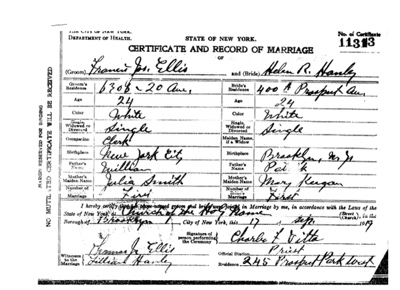 THE CITY OF NEW YORK.
DEPARTMENT OF HEALTH.
STATE OF NEW YORK.
No. of Certificate
11313
CERTIFICATE AND RECORD OF MARRIAGE
OF
(Groom) Francis Jos. Ellis and (Bride) Helen R. Hanley
Groom's Residence 6308 - 20 Ave. Bride's Residence 400 A Prospect Ave.
Age 24 Age 24
Color White Color White
Single, Widowed or Divorced Single Single, Widowed or Divorced Single
Occupation Clerk Maiden Name, if a Widow
Birthplace New York City Birthplace Brooklyn, N.Y.
Father's Name William Father's Name Pat'k
Mother's Maiden Name Julia Smith Mother's Maiden Name Mary Keegan
Number of Groom's Marriage Number of Bride's Marriage First
I hereby certify that the above-named groom and bride were joined in Marriage by me, in accordance with the Laws of the
State of New York, at Church of the Holy Name (Street Church), in the
Borough of Brooklyn, City of New York, this 17 of Sep. 19
Signature of person performing the Ceremony Charles F. Vitta
Witnesses to the Marriage Francis Jr. Ellis
Lillian Hanley
Official Station Priest
Residence 245 Prospect Park West
MARGIN RESERVED FOR BINDING
NO MUTILATED CERTIFICATE WILL BE RECEIVED